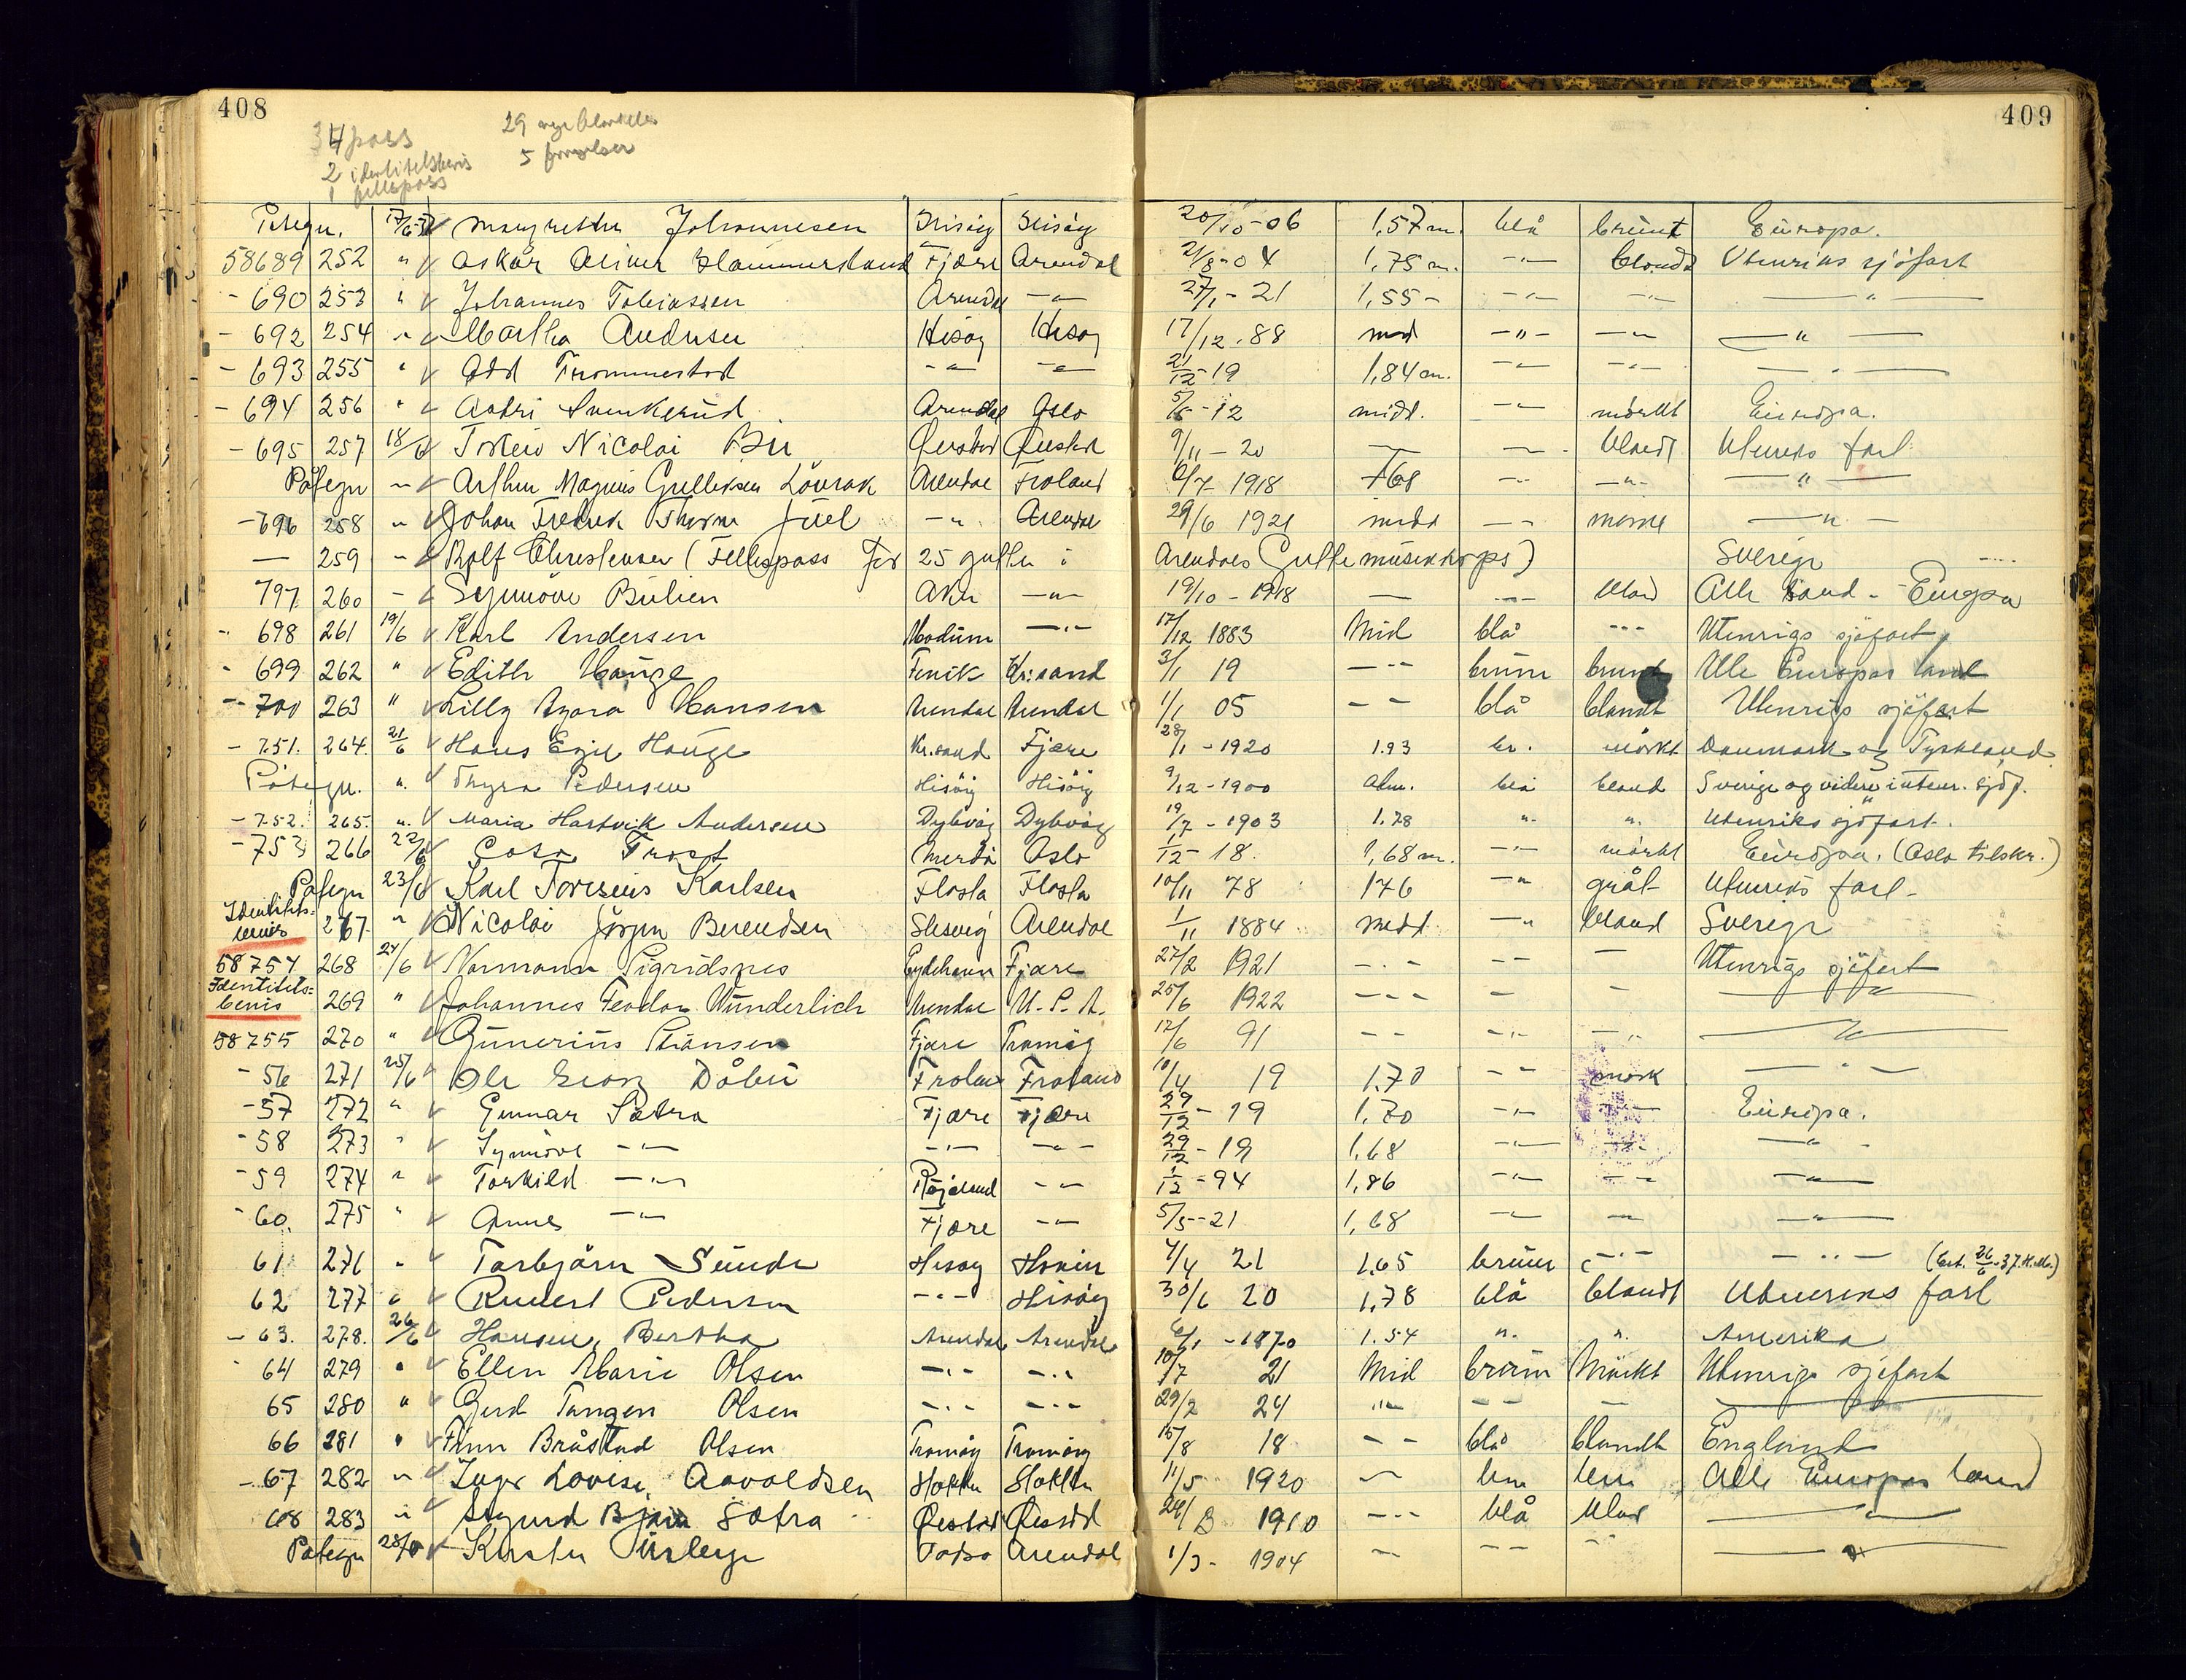 408
409
34 pass
29
2 identitetsbevis
5 fornyelser
1 fellespass
Påtegn. 17/6-37 Margrethe Johannesen Hisöy Hisöy 20/10-06 1,57 m. blå brünt Europa.
58689 252 " Oskar Oliver Hammersland Fjære Arendal 2/8-04 1,75 m. -"- blondt Utenriks sjöfart
- 690 253 " Johannes Tobiassen Arendal -"- 27/1-21 1,55 - -"- -"- -"-
- 692 254 " Martha Andersen Hisöy Hisöy 17/12.88 mid -"- -"- -"-
- 693 255 " Odd Trommestad -"- -"- 21/12-19 1,84 m. -"- -"- -"-
- 694 256 " Astri Svenkerud Arendal Oslo 5/5-12 midd. -"- mörkt Europa.
- 695 257 18/6 Nicolai Öiestad Öiestad 9/11-20 — -"- blondt Utenriks fart
Påtegn " Arthur Magnus Gulleksen Lövrak Arendal Froland 6/7 1918 168 -"- -"- -"-
- 696 258 " Johan Fredrik Juel -"- Arendal 29/6 1921 midd -"- mörke -"-
— 259 " Rolf Christensen (Fellespass for 25 gutter i Arendals Guttemusikkorps) Sverige
797 260 - Synnöve Bülien Aker -"- 19/10-1918 — -"- blond Alle land - Europa
- 698 261 19/6 Karl Andersen Modum -"- 17/12 1883 Mid blå -"- Utenrigs sjöfart
- 699 262 " Edith Hauge Fevik Kr.sand 3/1 19 -"- brune brunt Alle Europas land
- 700 263 " Lilly Hansen Arendal Arendal 1/1 05 - - blå blondt Utenrigs sjöfart
- 751. 264. 21/6 Hans Egil Hauge Kr.sand Fjære 28/1-1920 1.93 br. mörkt Danmark og Tyskland
Påtegn. ". Thyra Pedersen Hisöy Hisöy 9/12-1900 alm. blå blond Sverige og videre utenr. sjöf.
- 752. 265. ". Maria Hartvik Andersen Dybvåg Dybvåg 19/7-1903 1.78 ". ". Utenriks sjöfart.
- 753 266 22/6 Frost Merdö Oslo 1/12-18. 1,68 m. -"- mörkt Europa. (Oslo tilskr.)
Påtegn 23/6 Karl Karlsen Flosta Flosta 10/11 78 176 -"- grått Utenriks fart -
Identitetsbevis 267. " Nicolai Jörgen Berendsen Slesvig Arendal 1/11 1884 midd -"- blond Sverige
58754 268 24/6 Normann Sigridsnes Eydehavn Fjære 27/2 1921 -"- - - — Utenrigs sjöfart
Identitetsbevis 269 " Johannes Feodor Wunderlich Arendal U.S.A. 25/6 1922 - - - — — -"-
58755 270 " Gunerius Stiansen Fjære Tromöy 12/6 91 - - -"- -"- -"-
- 56 271 25/6 Ole Georg Dåbu Froland Froland 10/4 19 1.70 - - mörk -"-
- 57 272 " Gunnar Sætra Fjære Fjære 29/12-19 1,70 -"- -"- Europa.
- 58 273 " Synnöve -"- -"- -"- 29/12-19 1,68 -"- -"- -"-
- 59 274 " Torkild -"- -"- 1/12-94 1,86 -"- - - -"-
- 60. 275 " Anne -"- Fjære -"- 5/5-21 1,68 -"- -"- -"-
61 276 " Torbjörn Sunde Hisöy 4/4 21 1.65 brune -"- -"-
62 277 " Pedersen -"- Hisöy 30/6 20 1,78 blå blondt Utenriks fart
- 63. 278. 26/6 Hansen, Bertha Arendal Arendal 6/1-1870 1.54 ". ". Amerika
64 279 " Ellen Marie Olsen -"- -"- 10/7 21 Mid brun Mörkt Utenrigs sjöfart
65 280 " Gerd Tangen Olsen -"- -"- 29/2 24 "- — — -"-
66 281 " Finn Bråstad Olsen Tromöy Tromöy 15/8 18 - - blå blondt England
- 67 282 " Inger Lovise Aavoldsen Holt Holt 11/5 1920 — brun brun Alle Europas land
68 283 " Sigurd Sætra Öiestad Öiestad 1910 -"- blå blond -"-
Påtegn 28/6 Kirsten Arendal 1/3-1904 — - - -"-